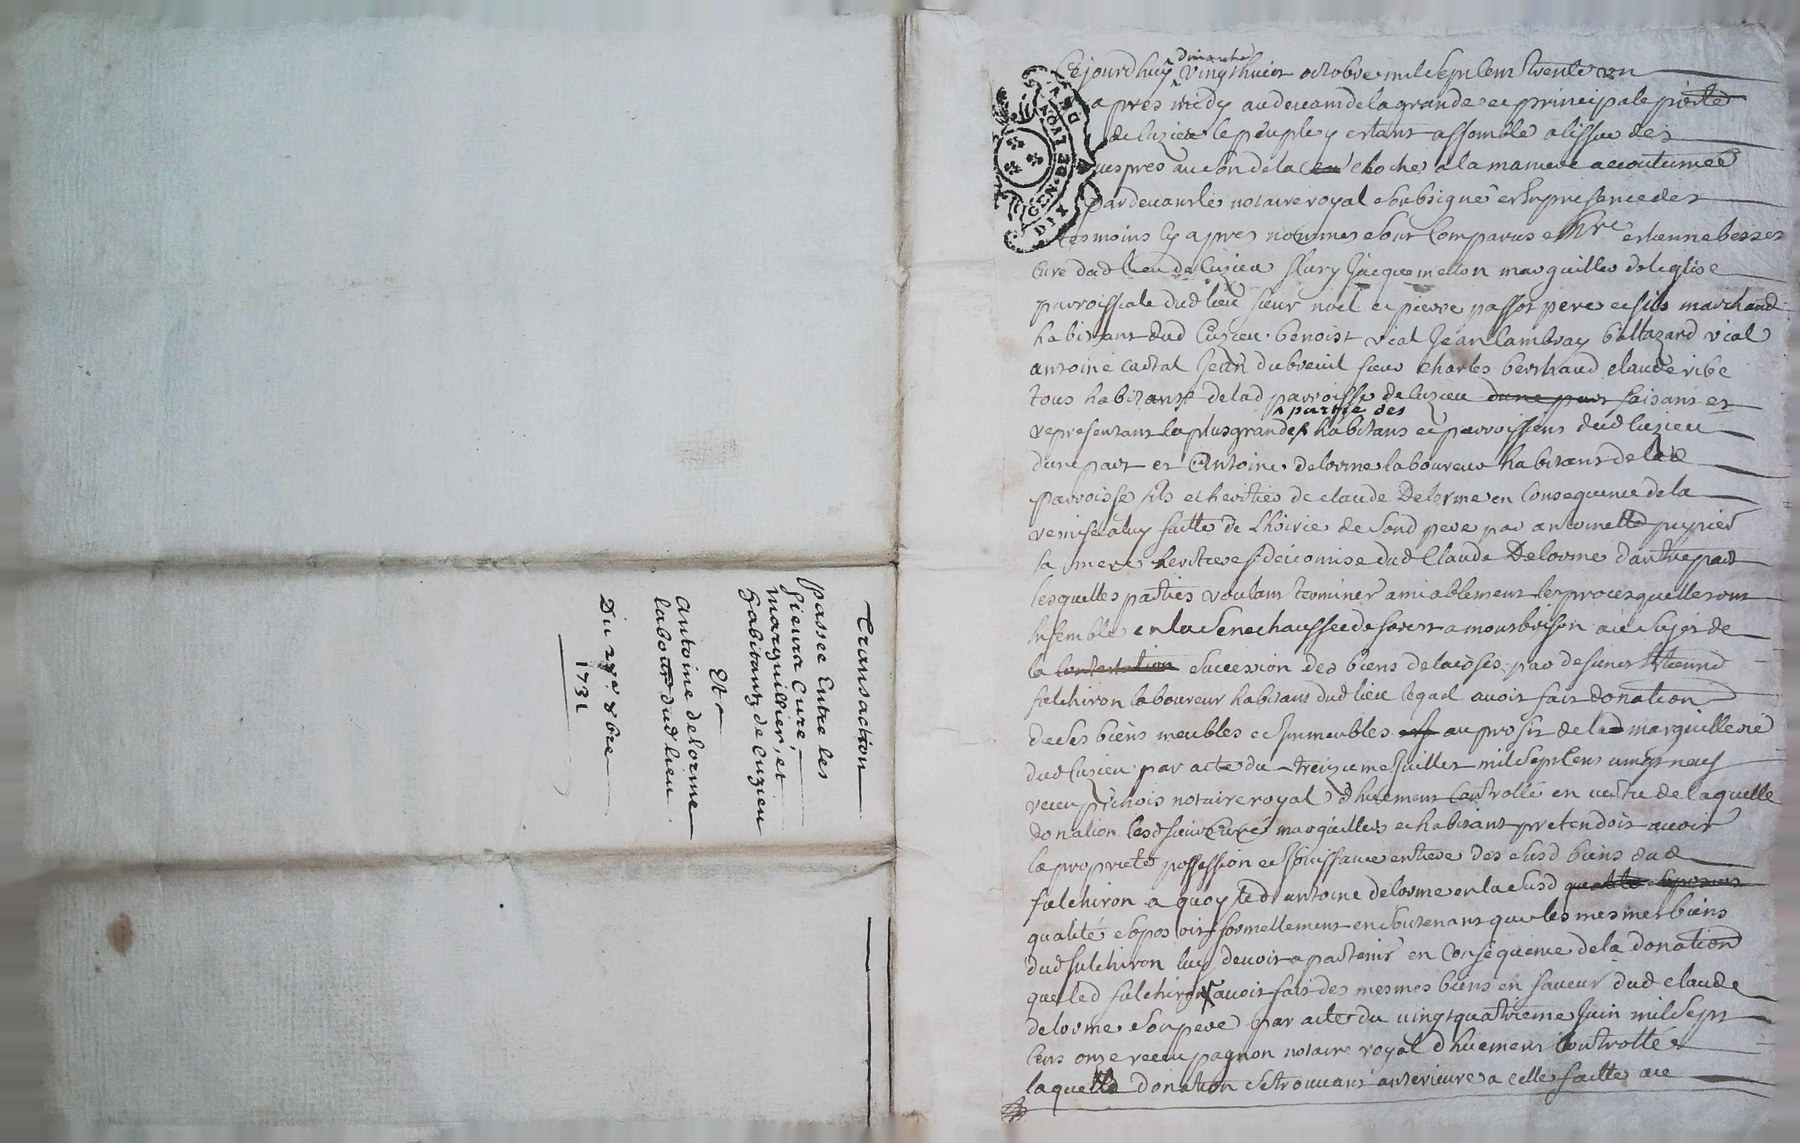 Transaction
passée Entre les
Sieurs Curé,
marguillier, et
habitantz de Cuzieu
Et
Antoine delorme
labour dud lieu
Du 28e 8bre
1731
GEN. DE LYON
DIX DEN
Cejourdhuy dimanche vingthuict octobre mil sept cens trente un
apres midy au devant de la grande et principale porte
de Cuzieu le peuple y estant assemblé a lissue des
vespres au son de la cloche a la maniere accoutumée
pardevant le notaire royal soubsigné et en presence des
tesmoins cy apres nommes sont comparus Mre estienne besset
curé dud lieu de Cuzieu fleury Jacquemetton marguillier de leglise
parroissiale dud lieu sieur noel et pierre passot pere et fils marchand
habitant dud Cuzieu benoist vial Jean lambray baltazard vial
antoine cartal Jean dubreuil sieur charles berthaud claude ribe
tous habitant de lad parroisse de Cuzieu dune part faisant et
representant la plus grande partie des habitans et parroissiens dud Cuzieu
dune part et Antoine delorme laboureur habitant de lad
parroisse fils et heritier de claude Delorme en consequence de la
remise a luy faitte de Lhoirie de sond pere par antoinette pupier
sa mere heritiere fideicomise dud Claude Delorme dautre part
lesquelles parties voulant terminer amiablement le proces quelles ont
ensemble en la senechaussée de forest a montbrison au sujet de
la contestation succession des biens delaissés par defunct Etienne
fulchiron laboureur habitant dud lieu lequel avoit fait donation
de ses biens meubles et immeubles au profit de lad marguillerie
dud Cuzieu par acte du treizieme juillet mil sept cens vingt neuf
receu pichois notaire royal dhuement Controllé en vertu de laquelle
donation lesd sieurs Curé marguillers et habitant pretendoit avoir
la proprieté possession et jouissance entiere des susd biens dud
fulchiron a quoy led antoine delorme en la susd qualité sopposoit
qualité sopposoit formellement en soutenant que les mesmes biens
dud fulchiron luy devoit apartenir en consequence de la donation
que led fulchiron avoit fait des mesmes biens en faveur dud claude
delorme son pere par acte du vingt quatrieme juin mil sept
cens onze receu pagnon notaire royal dhuement controllé
laquelle donation se trouvant anterieure a celle faitte au